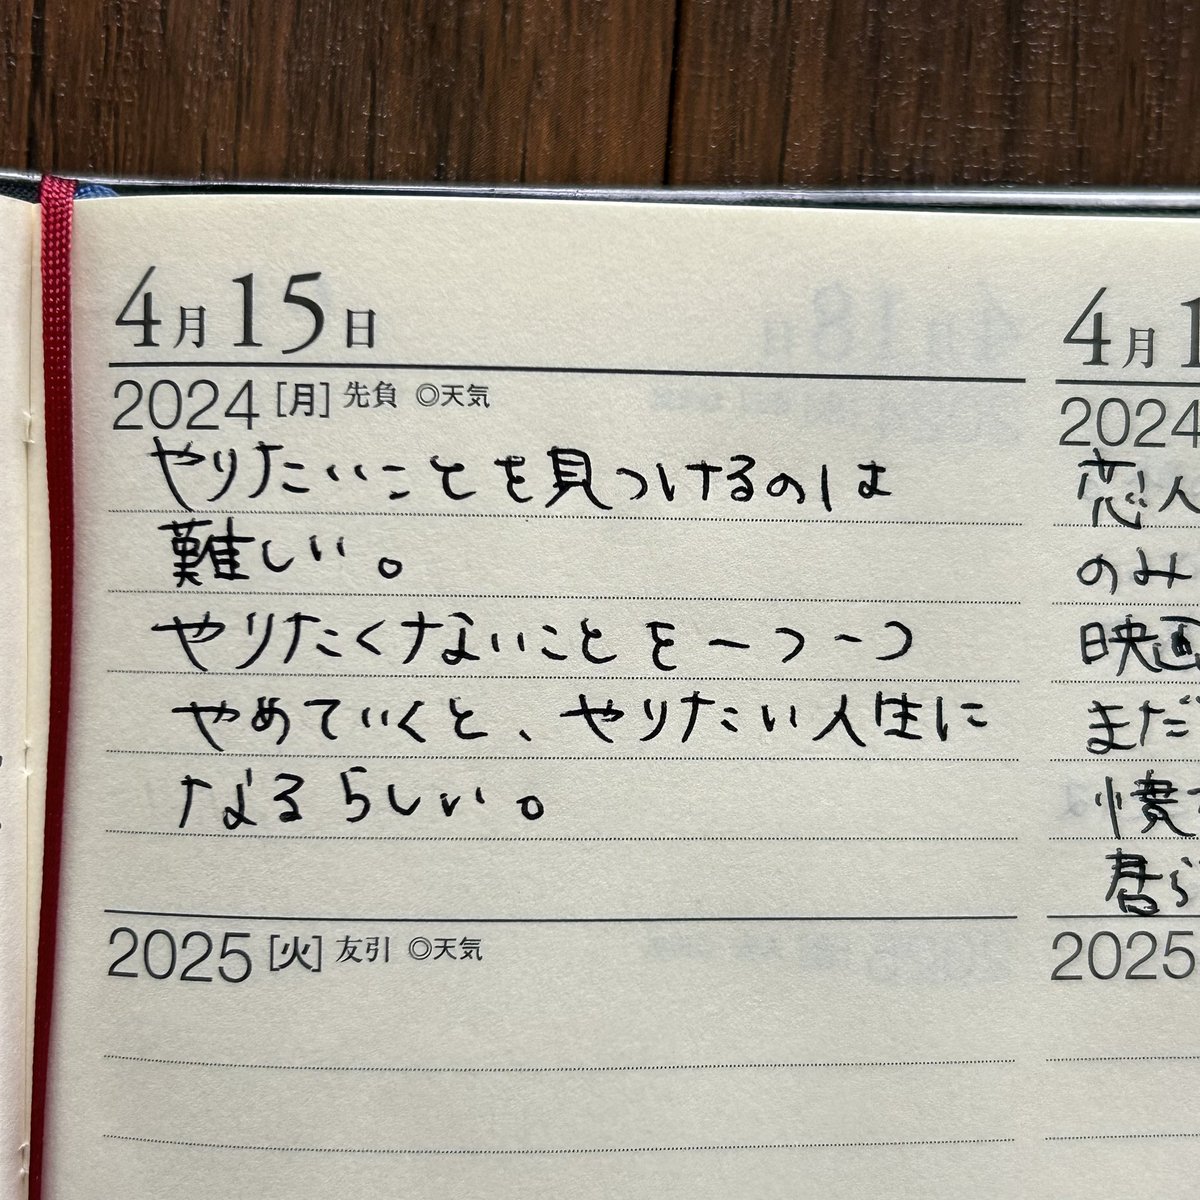 4月15日
2024 [月] 先負 ◎天気
やりたいことを見つけるのは
難しい。
やりたくないことを一つ一つ
やめていくと、やりたい人生に
なるらしい。
2025 [火] 友引 ◎天気
4月1
2024
恋人
のみ
映画
まだ
憤
君ら
2025